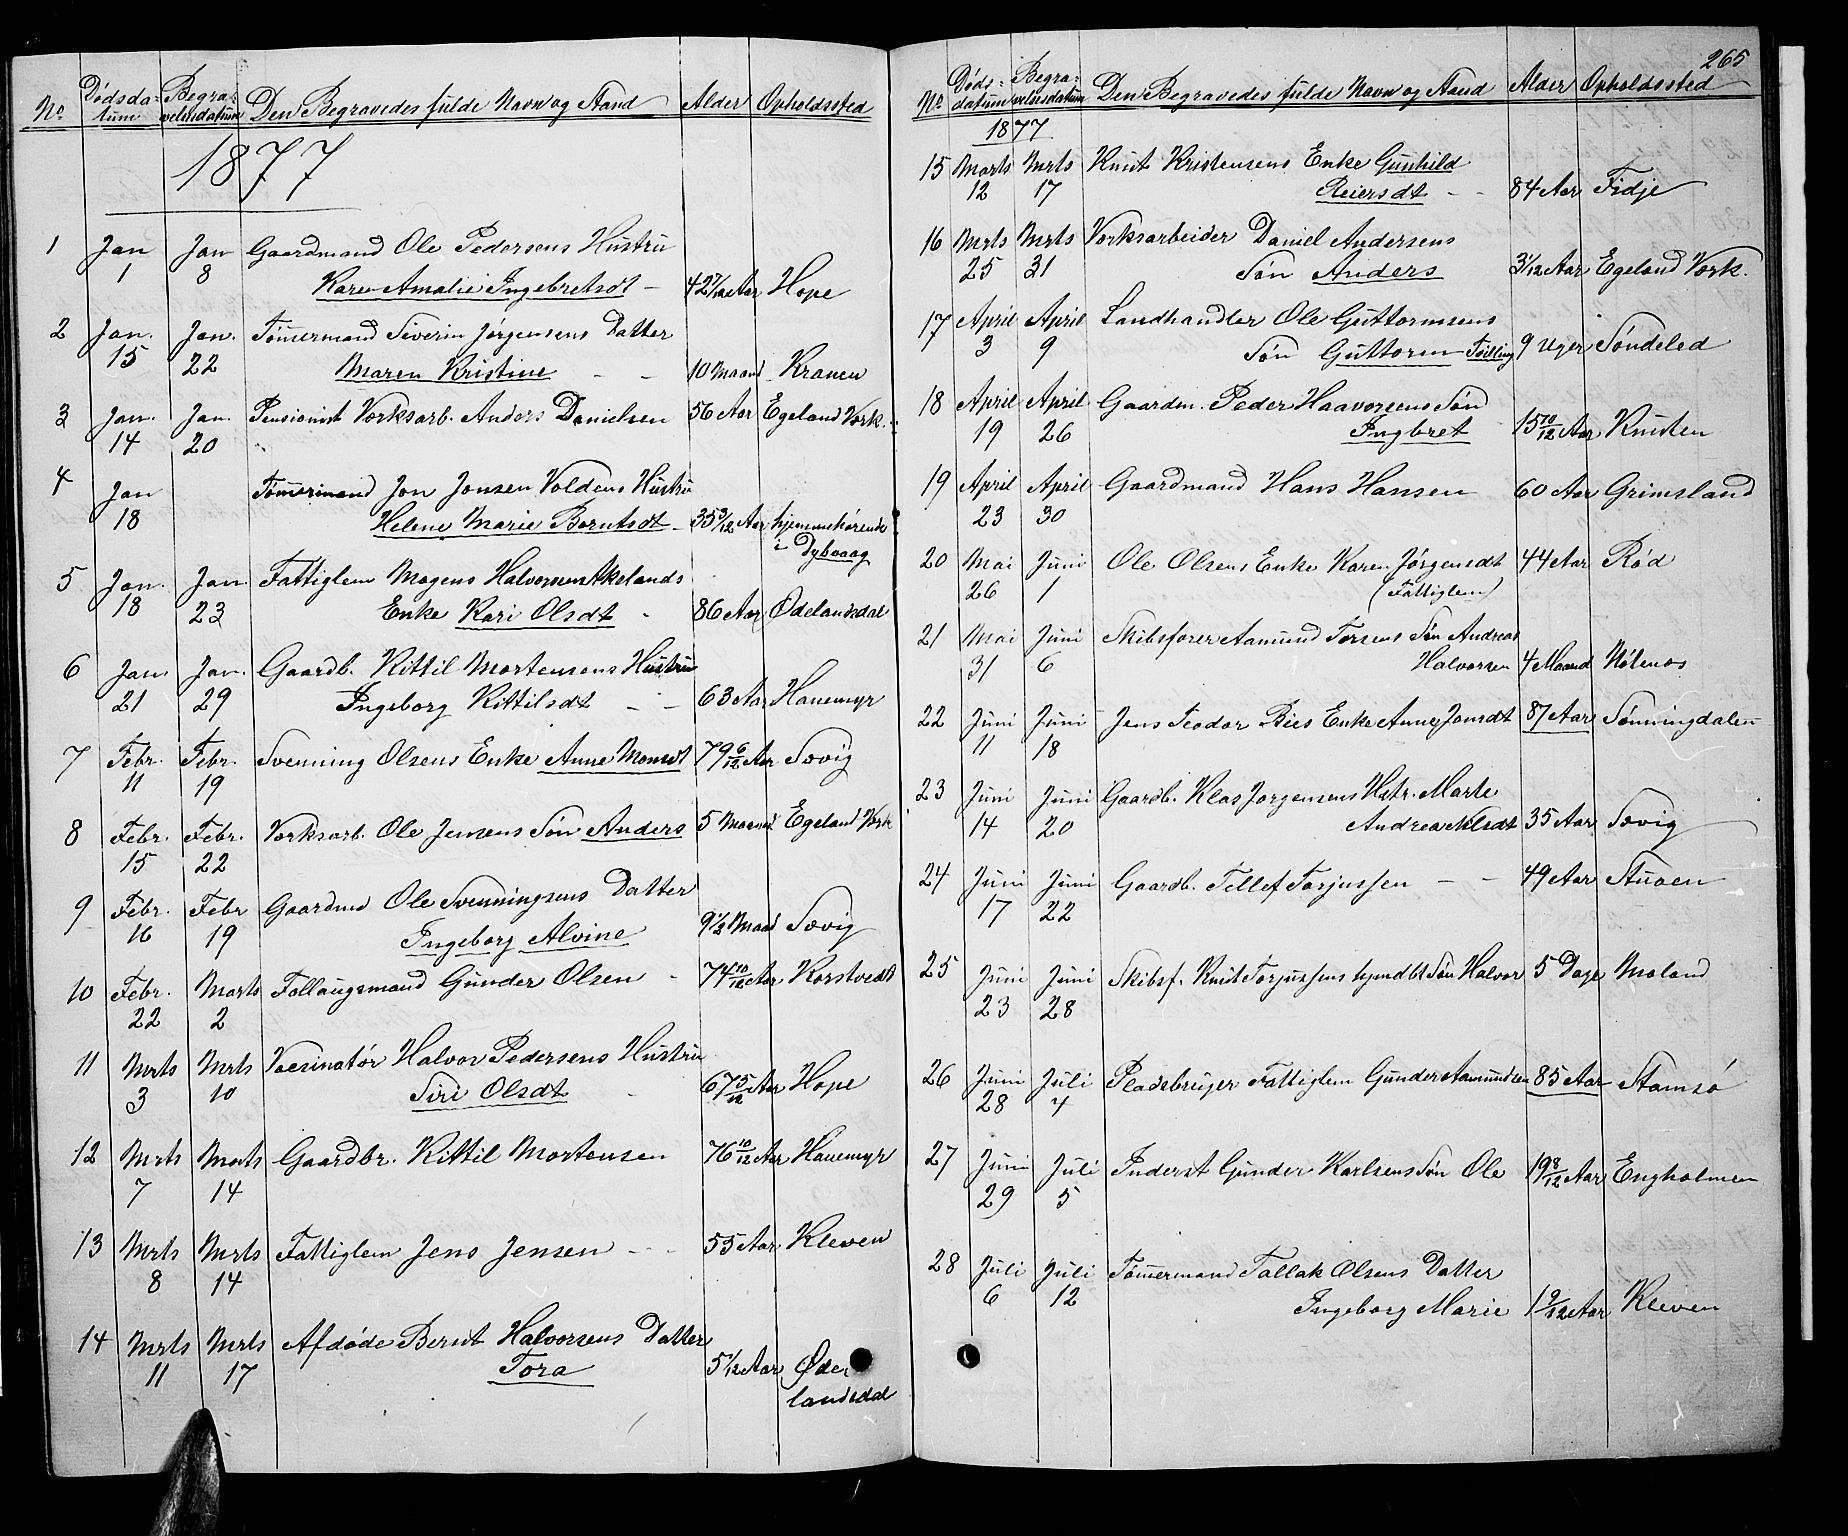 No Dødsdatum Begravelsesdatum Den Begravedes fulde Navn og Stand Alder Opholdssted
1877
1 Jan 1 Jan 8 Gaardmand Ole Pedersens Hustru
Karen Amalie Ingebretsdt - 42 7/12 Aar Hope
2 Jan. 15 Jan. 22 Tømermand Siverin Jørgensens Datter
Maren Kristine - - 10 Maand Kranen
3 Jan. 14 Jan. 20 Pensionist Værksarb. Anders Danielsen 56 Aar Egeland Værk.
4 Jan 18 Tømermand Jon Jonsen Voldens Hustru
Helene Marie Berntsdt - 35 3/12 Aar hjemmehørende
i Dybvaag
5 Jan. 18 Jan. 23 Fattiglem Mogens Halvorsen Akelands
Enke Kari Olsdt - 86 Aar Ødelandsdal
6 Jan. 21 Jan. 29 Gaardb. Kittil Mortensens Hustru
Ingeborg Kittilsdt - - 63 Aar Hauemyr
7 Febr. 11 Febr. 19 Svenning Olsens Enke Anne Monsdt 79 6/12 Aar Sævig
8 Febr. 15 Febr. 22 Værksarb. Ole Jensens Søn Anders 5 Maaned Egeland Værk
9 Febr. 16 Febr 19 Gaardmd Ole Svenningsens Datter
Ingeborg Alvine 9 1/2 Maad Sævig
10 Febr. 22 Marts 2 Follaugsmand Gunder Olsen - 74 10/12 Aar Korstvedt
11 Mrts 3 Mrts 10 Vacsinatør Halvor Pedersens Hustru
Siri Olsdt - 67 5/12 Aar Hope
12 Mrts 7 Marts 14 Gaardbr. Kittil Mortensen 76 10/12 Aar Hauemyr
13 Mrts 8 Mrts 14 Fattiglem Jens Jensen - - 55 Aar Kleven
14 Mrts 11 Mrts 17 Afdøde Bernt Halvorsens Datter
Tora 5 1/12 Aar Øde
landsdal
265
No Dødsdatum Begravelsesdatum Den Begravedes fulde Navn og Stand Alder Opholdssted
1877
15 Marts 12 Mrts 17 Knut Kristensens Enke Gunhild
Reiersdt - - 84 Aar Fidje
16 Mrts 25 Mrts 31 Værksarbeider Daniel Andersens
Søn Anders 3 1/12 Aar Egeland Værk.
17 April 3 April 9 Landhandler Ole Guttormsens
Søn Guttorm Tvilling 9 Uger Søndeled
18 April 19 April 26 Gaardm. Peder Haavorsens Søn
Ingbret 15 10/12 Aar Knuten
19 April 23 April 30 Gaardmand Hans Hansen 60 Aar Grimsland
20 Mai 26 Juni 1 Ole Olsens Enke Karen Jørgensdt 44 Aar Rød
(Fattiglem)
21 Mai 31 Juni 6 Skibsfører Aamund Torsens Søn Andreas
Halvorsen 4 Maand
22 Juni 11 Juni 18 Jens Teodor Bies Enke Anne Jonsdt 87 Aar Sønningdalen
23 Juni 14 Juni 20 Gaardb. Klas Jørgensens Hstr. Marte
Andrea Nilsdt 35 Aar Sævig
24 Juni 17 Juni 22 Gaardb. Tellef Torjussen - - 49 Aar Stuven
25 Juni 23 Juni 28 Skibsf. Knut Torjussens hjmdbt Søn Halvor 5 Dage Moland
26 Juni 28 Juli 4 Pladsbruger Fattiglem Gunder Aamundsen 85 Aar Stamsø
27 Juni 29 Juli 5 Inderst Gunder Karlsens Søn Ole 19 8/12 Aar Engholmen
28 Juli 6 Juli 12 Tømermand Tallak Olsens Datter
Ingeborg Marie 1 9/12 Aar Kleven